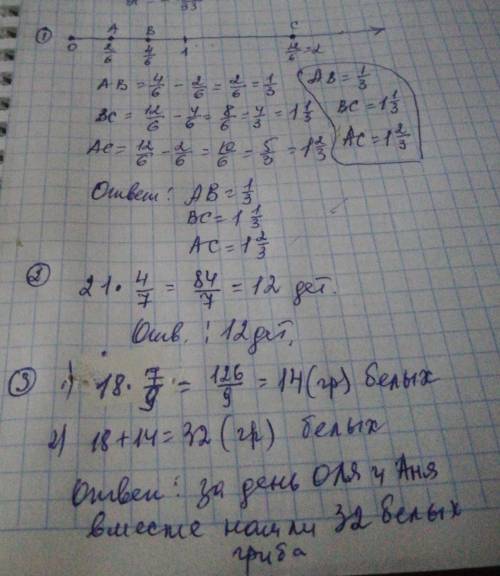 ① A B C
0 2/6 4/6 1 12/6 = 2
AB = 4/6 - 2/6 = 2/6 = 1/3
BC = 12/6 - 4/6 = 8/6 = 4/3 = 1 1/3
AC = 12/6 - 2/6 = 10/6 = 5/3 = 1 2/3
AB = 1/3
BC = 1 1/3
AC = 1 2/3
Ответ: AB = 1/3
BC = 1 1/3
AC = 1 2/3
② 21 · 4/7 = 84/7 = 12 дет.
Отв.: 12 дет.
③ 1) 18 · 7/9 = 126/9 = 14 (гр) белых
2) 18 + 14 = 32 (гр) белых
Ответ: за день Оля и Аня
вместе нашли 32 белых
гриба